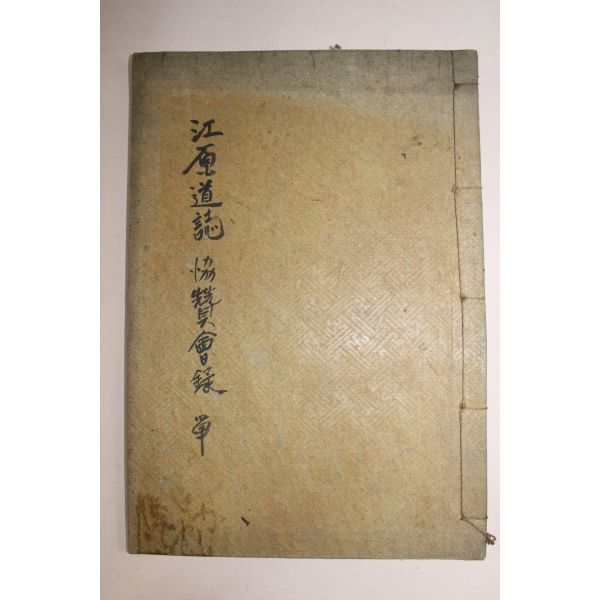 江原道誌 協贊會錄 單